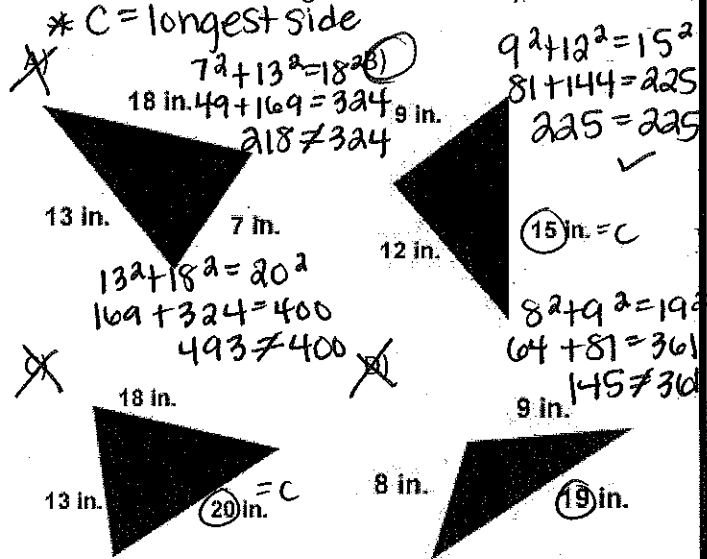 * C = longest side
A)
7² + 13² = 18²
18 in. 49 + 169 = 324
218 ≠ 324
13 in.
7 in.
B)
9² + 12² = 15²
81 + 144 = 225
9 in.
225 = 225
✓
12 in.
15 in. = C
13² + 18² = 20²
169 + 324 = 400
493 ≠ 400
C)
18 in.
13 in.
20 in. = C
8² + 9² = 19²
64 + 81 = 361
D)
145 ≠ 36
9 in.
8 in.
19 in.